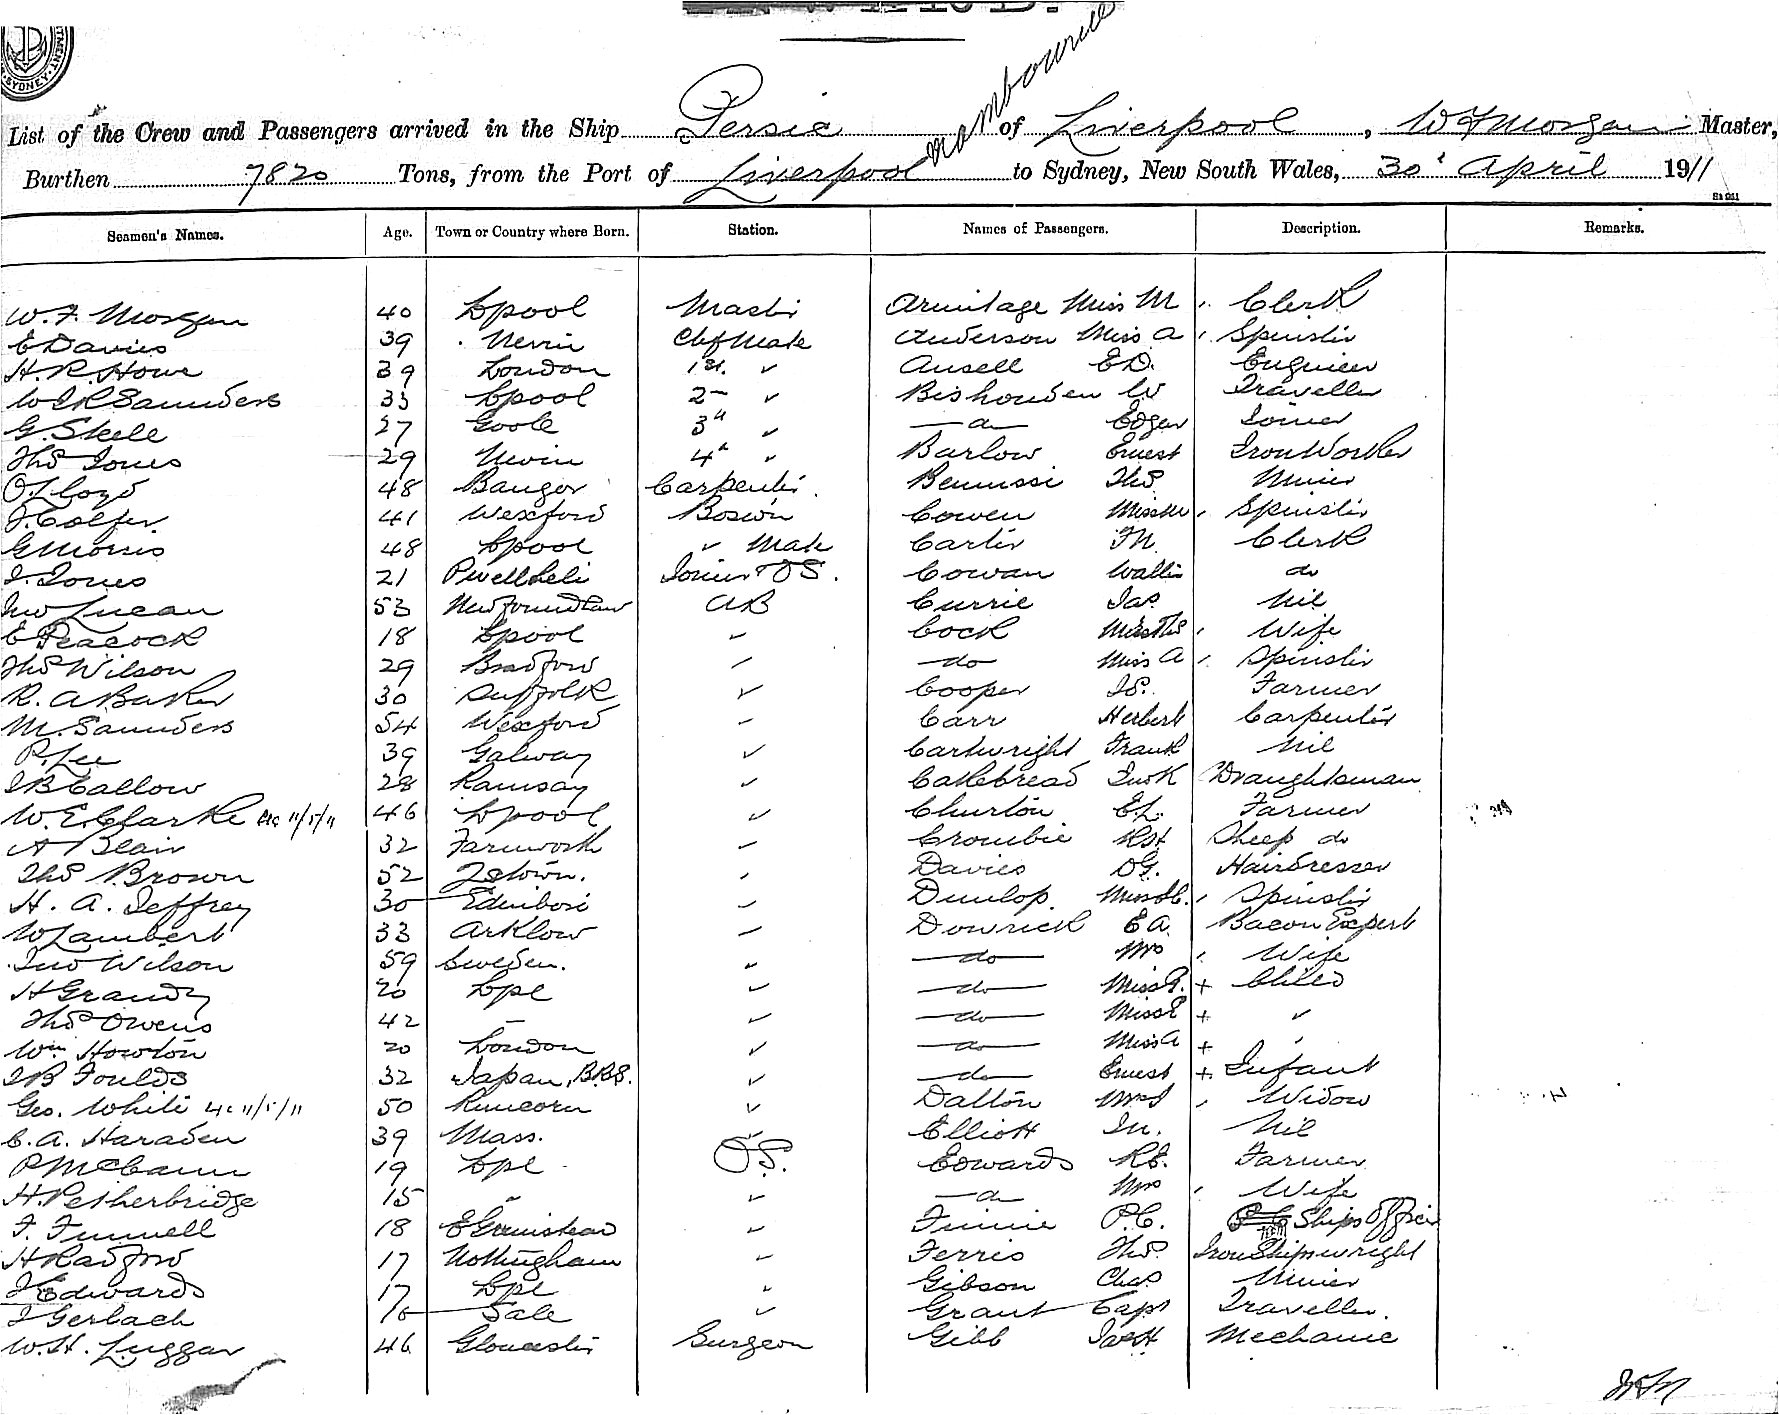 SYDNEY
nambourne
List of the Crew and Passengers arrived in the Ship Persic of Liverpool, W F Morgan Master,
Burthen 7820 Tons, from the Port of Liverpool to Sydney, New South Wales, 30 April 1911
Seamen's Names. Age. Town or Country where Born. Station. Names of Passengers. Description. Remarks.
W. F. Morgan 40 Lpool Master Armitage Miss M Clerk
E Davies 39 Nevin Chf Mate Anderson Miss A Spinster
H. R. Howe 39 London 1st. ✓ Ansell ED. Engineer
Saunders 33 Lpool 2 ✓ Bishouden W Traveller
G. Skell 27 Goole 3d ✓ —do— Edgar Joiner
Thos Jones 29 Nevin 4th ✓ Barlow Ernest Iron Worker
O Lloyd 48 Bangor Carpenter. Bennissi Thos Miner
J. Colfer. 41 Wexford Bosun Cowen Miss M Spinster
G Morris 48 Lpool ✓ Mate Carter Clerk
J. Jones 21 Pwellheli Joiner & OS. Cowan Walter do
Jno Lucan 53 Newfoundland AB Currie Jas Nil
E Peacock 18 Lpool ✓ Cock Wife
Thos Wilson 29 Bradford ✓ —do— Miss A Spinster
R. A Baker 30 Suffolk ✓ Cooper Farmer
M. Saunders 54 Wexford ✓ Carr Herbert Carpenter
P. Lee 39 Galway ✓ Cartwright Frank Nil
J B Callow 28 Ramsay ✓ Cakebread Draughtsman
W. E. Clarke 11/5/11 46 Lpool ✓ Churton EL. Farmer
A Blair 32 Farnworth ✓ Crombie RH Sheep do
Thos Brown 52 ✓ Davies DG. Hairdresser
H. A. Jeffrey 30 Edinboro ✓ Dunlop Miss Spinster
W Lambert 33 Arklow ✓ Dowrick E A. Bacon Expert
Jno Wilson 59 Sweden. ✓ —do— Mrs Wife
H Grandy 20 Lpl ✓ —do— Miss + Child
Thos Owens 42 — ✓ —do— Miss E + ✓
Wm Howton 20 London ✓ —do— Miss A +
J B Foulds 32 Japan, B.B.S. ✓ —do— Ernest + Infant
Geo. White 11/5/11 50 Runcorn ✓ Dalton Mrs Widow
C. A. Haraden 39 Mass. ✓ Elliott Jn. Nil
P McCann 19 Lpl OS. Edwards RE. Farmer
H. Petherbridge 15 " ✓ —do— Mrs Wife
F. Funnell 18 E Grinstead ✓ Finnie P.C. Ships Officer
H Radford 17 Nottingham ✓ Ferris Thos. Iron Shipwright
J Edwards 17 Lpl ✓ Gibson Chas Miner
J Gerlach 16 Sale ✓ Grant Capt Traveller.
W. H. Luggar 46 Gloucester Surgeon Gibb Jas H Mechanic